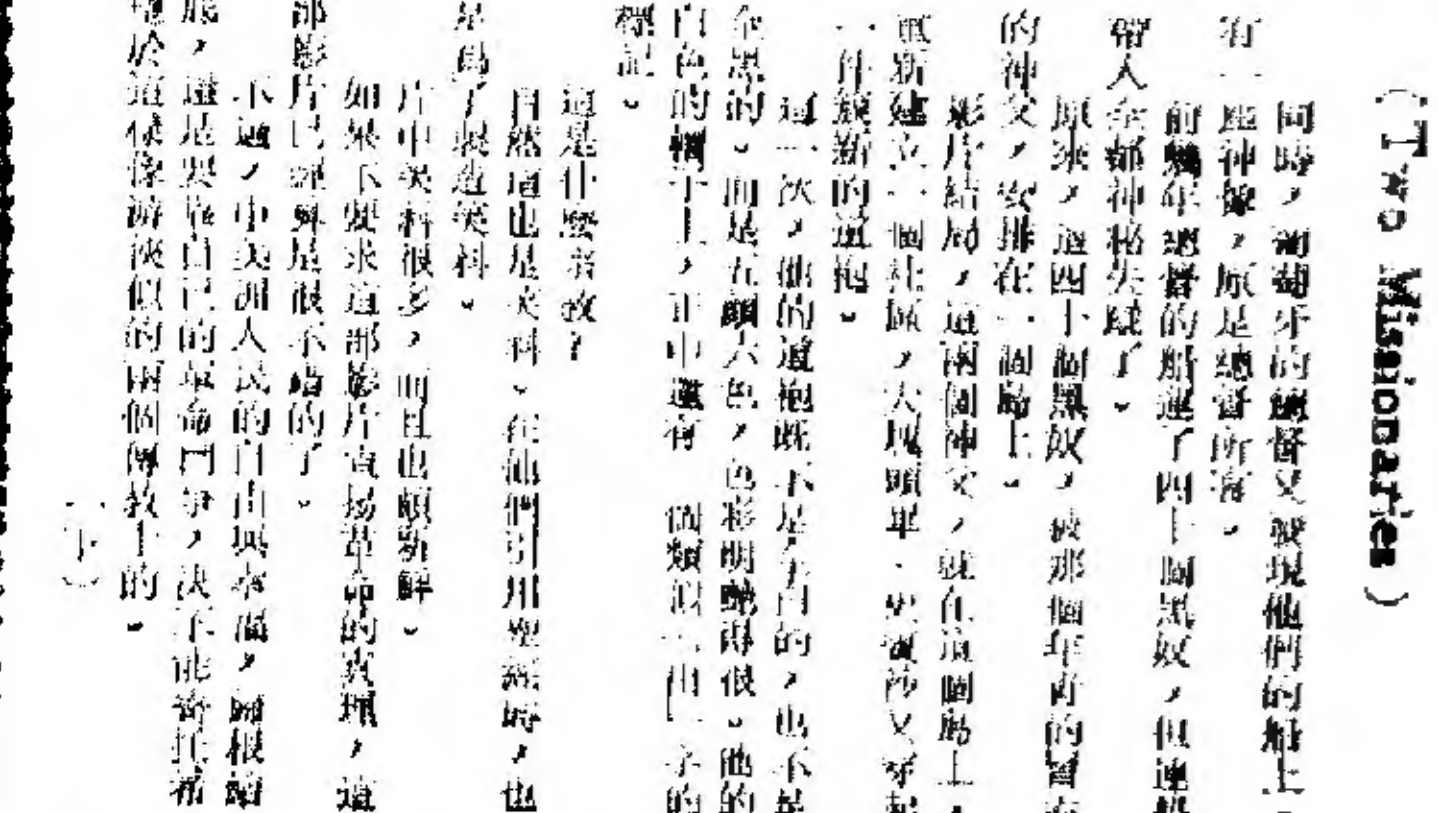 (Two Missionaries)
同時,葡萄牙的總督又發現他們的船上,
有一座神像,原是總督所有。
前幾年總督的船運了四十個黑奴,但連船
帶人全部神秘失蹤了。
原來,這四十個黑奴,被那個年青的
的神父,安排在一個島上。
影片結局,這兩個神父,就在這個島上,
重新建立一個社區,大塊頭畢·史賓沙又穿起
一件簇新的道袍。
這一次,他的道袍既不是全白的,也不是
全黑的。而是五顏六色,色彩明艷得很。他的
白色的帽子上,正中還有一個類似「出」字的
標記。
這是什麼宗教?
自然這也是笑料。在他們引用聖經時,也
是為了製造笑料。
片中笑料很多,而且也頗新鮮。
如果不要求這部影片宣揚革命的真理,這
部影片已經算是很不錯的了。
不過,中美洲人民的自由與幸福,歸根結
底,還是要靠自己的革命鬥爭,決不能寄托希
望於這樣像游俠似的兩個傳教士的。
(下)